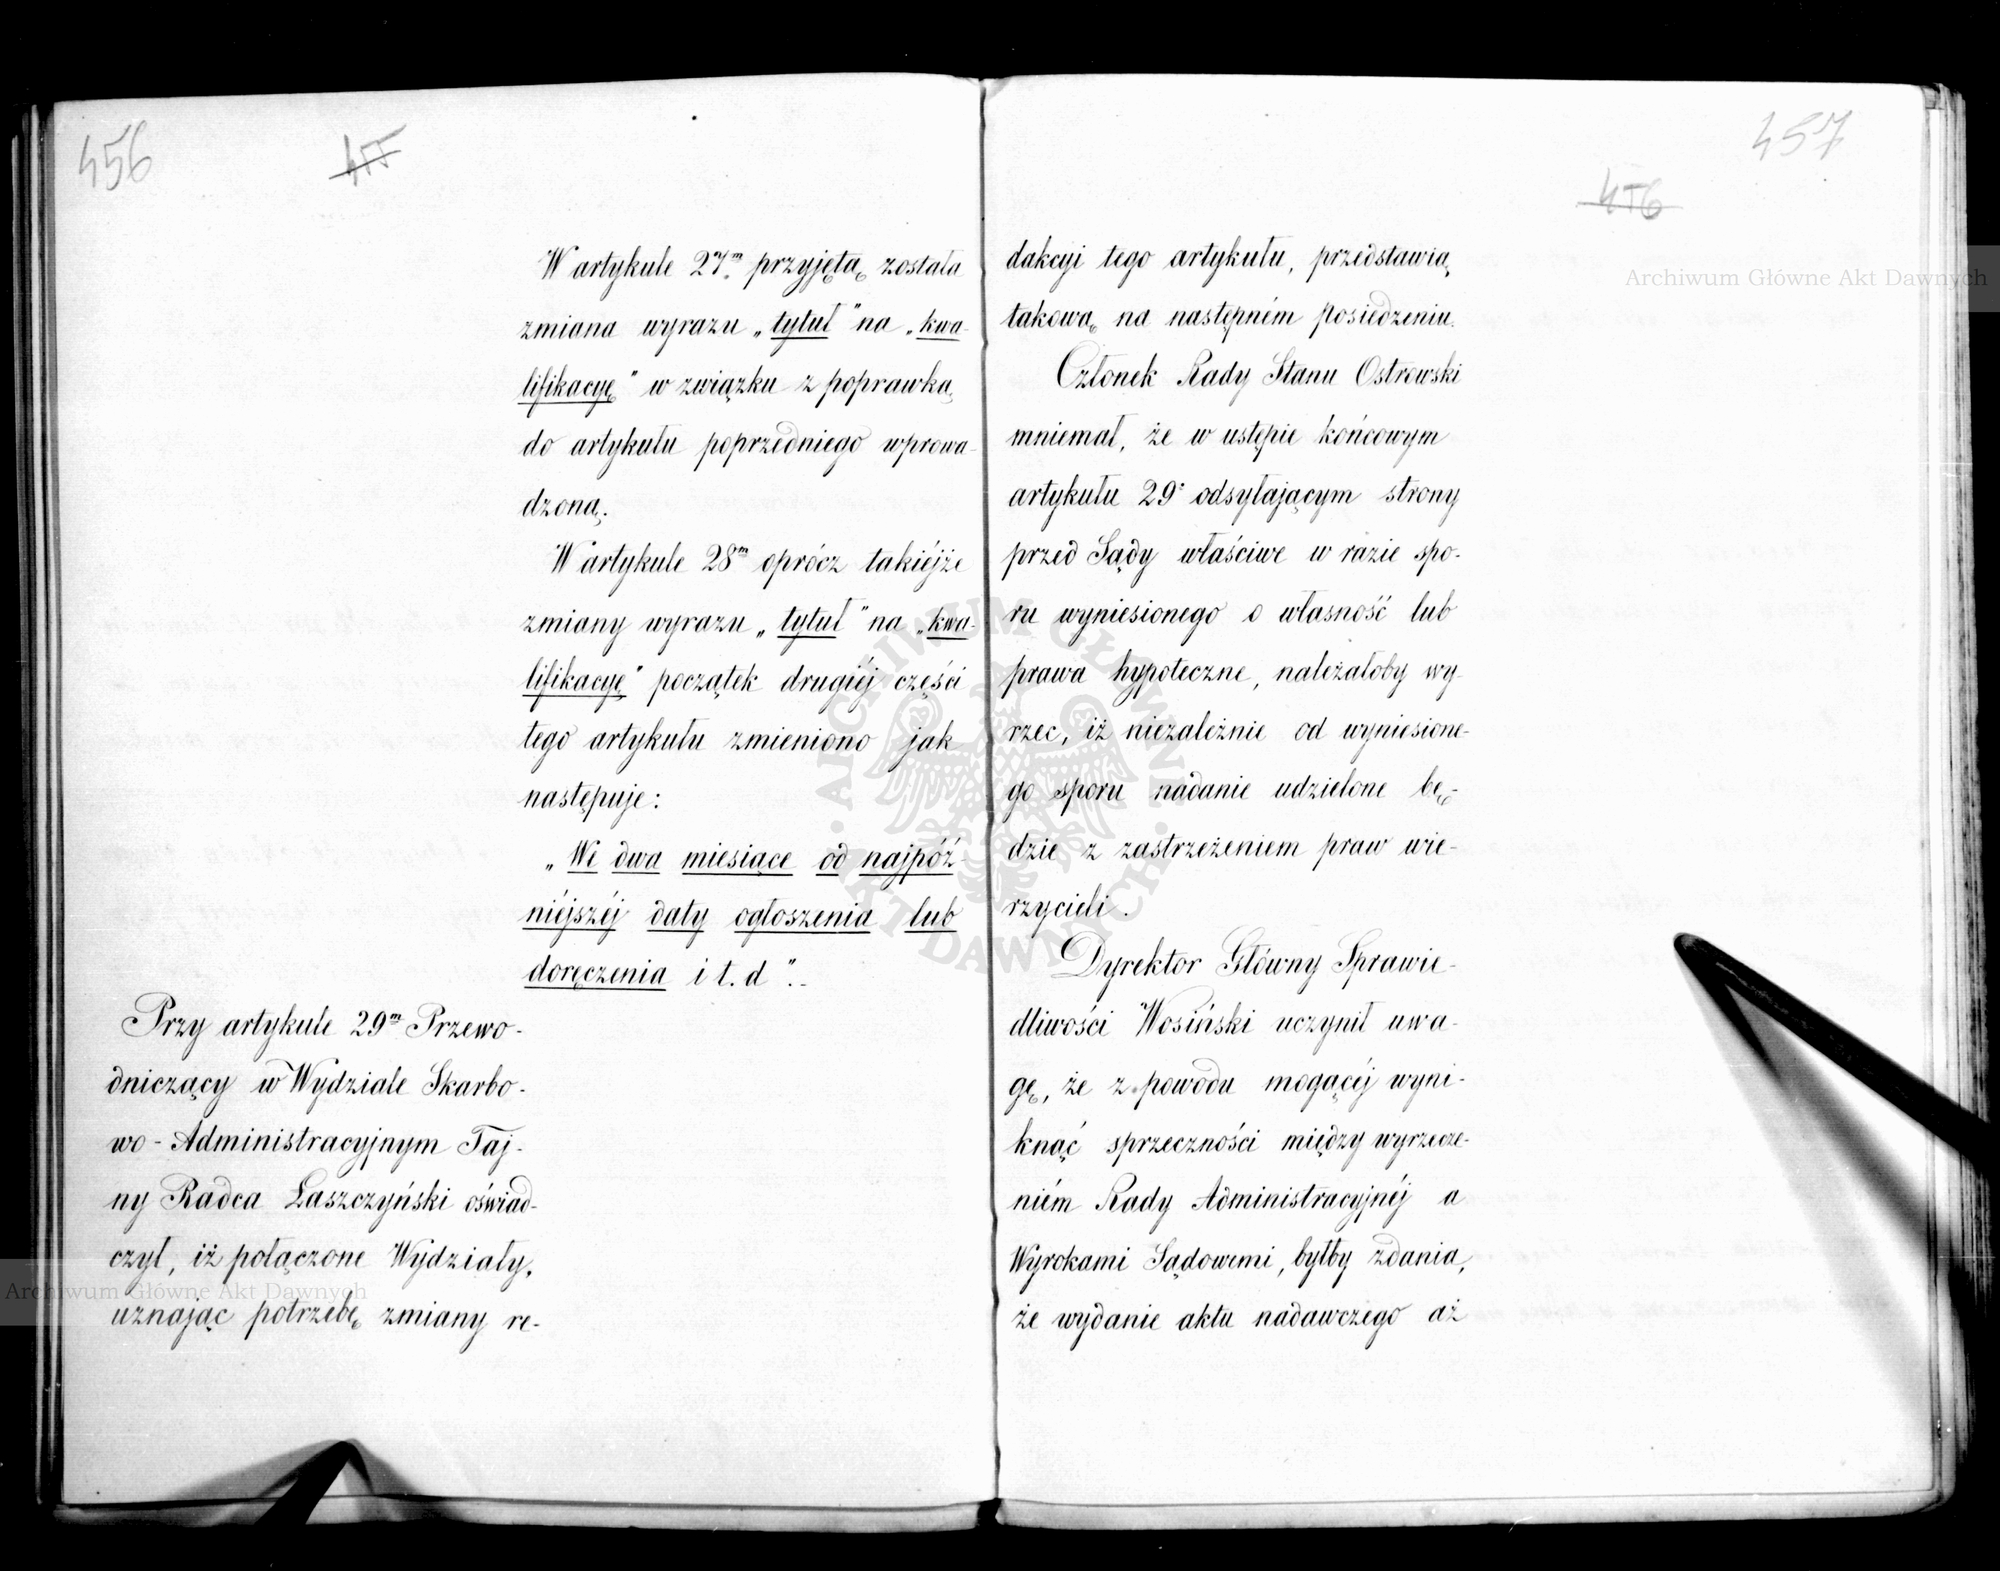 456
455
W artykule 27.m przyjętą została
zmiana wyrazu „tytuł” na „kwa-
lifikacyę” w związku z poprawką,
do artykułu poprzedniego wprowa-
dzoną.
W artykule 28m oprócz takiéjże
zmiany wyrazu „tytuł” na „kwa-
lifikacyę” początek drugiéj części
tego artykułu zmieniono jak
następuje:
„We dwa miesiące od najpóź-
niéjszéj daty ogłoszenia lub
doręczenia i t. d”..
Przy artykule 29m Przewo-
dniczący w Wydziale Skarbo-
wo-Administracyjnym Taj-
ny Radca Łaszczyński oświad-
czył, iż połączone Wydziały,
uznając potrzebę zmiany re-
457
456
dakcyi tego artykułu, przedstawią
takową na następném posiedzeniu.
Członek Rady Stanu Ostrowski
mniemał, że w ustępie końcowym
artykułu 29o odsyłającym strony
przed Sądy właściwe w razie spo-
ru wyniesionego o własność lub
prawa hypoteczne, należałoby wy-
rzec, iż niezależnie od wyniesione-
go sporu nadanie udzielone bę-
dzie z zastrzeżeniem praw wie-
rzycieli.
Dyrektor Główny Sprawie-
dliwości Wosiński uczynił uwa-
gę, że z powodu mogącéj wyni-
knąć sprzeczności między wyrzecze-
niém Rady Administracyjnéj a
Wyrokami Sądowemi, byłby zdania,
że wydanie aktu nadawczego aż
Archiwum Główne Akt Dawnych
Archiwum Główne Akt Dawnych
ARCHIWUM GŁÓWNE AKT DAWNYCH